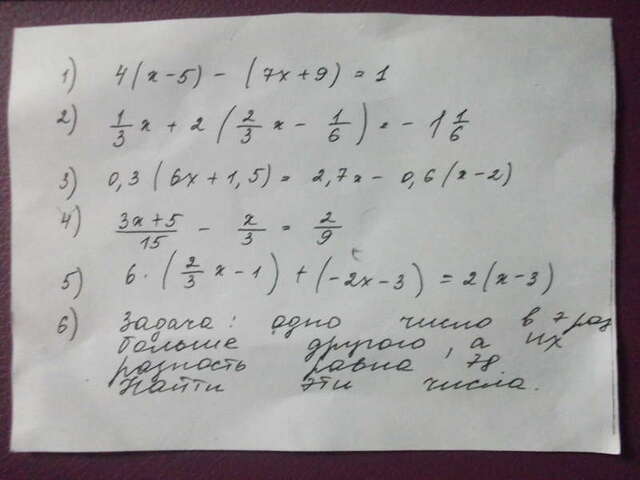 1) 4(x-5) - (7x+9) = 1
2) 1/3 x + 2 (2/3 x - 1/6) = - 1 1/6
3) 0,3 (6x + 1,5) = 2,7x - 0,6 (x-2)
4) (3x+5)/15 - x/3 = 2/9
5) 6 · (2/3 x - 1) + (-2x - 3) = 2(x-3)
6) Задача: одно число в 7 раз
больше другого, а их
разность равна 78.
Найти эти числа.